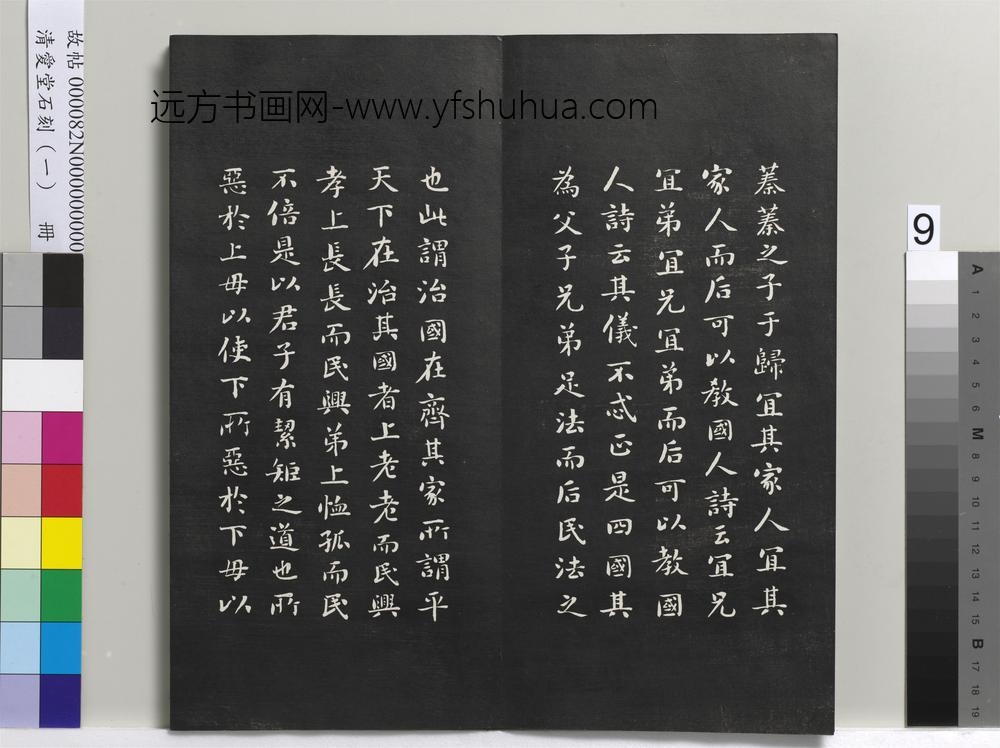 故帖 000082N000000000
清愛堂石刻(一) 冊
远方书画网-www.yfshuhua.com
蓁蓁之子于歸宜其家人宜其
家人而后可以教國人詩云宜兄
宜弟宜兄宜弟而后可以教國
人詩云其儀不忒正是四國其
為父子兄弟足法而后民法之
也此謂治國在齊其家所謂平
天下在治其國者上老老而民興
孝上長長而民興弟上恤孤而民
不倍是以君子有絜矩之道也所
惡於上毋以使下所惡於下毋以
9
A
1
2
3
4
5
6
M
8
9
10
11
12
13
14
15
B
17
18
19